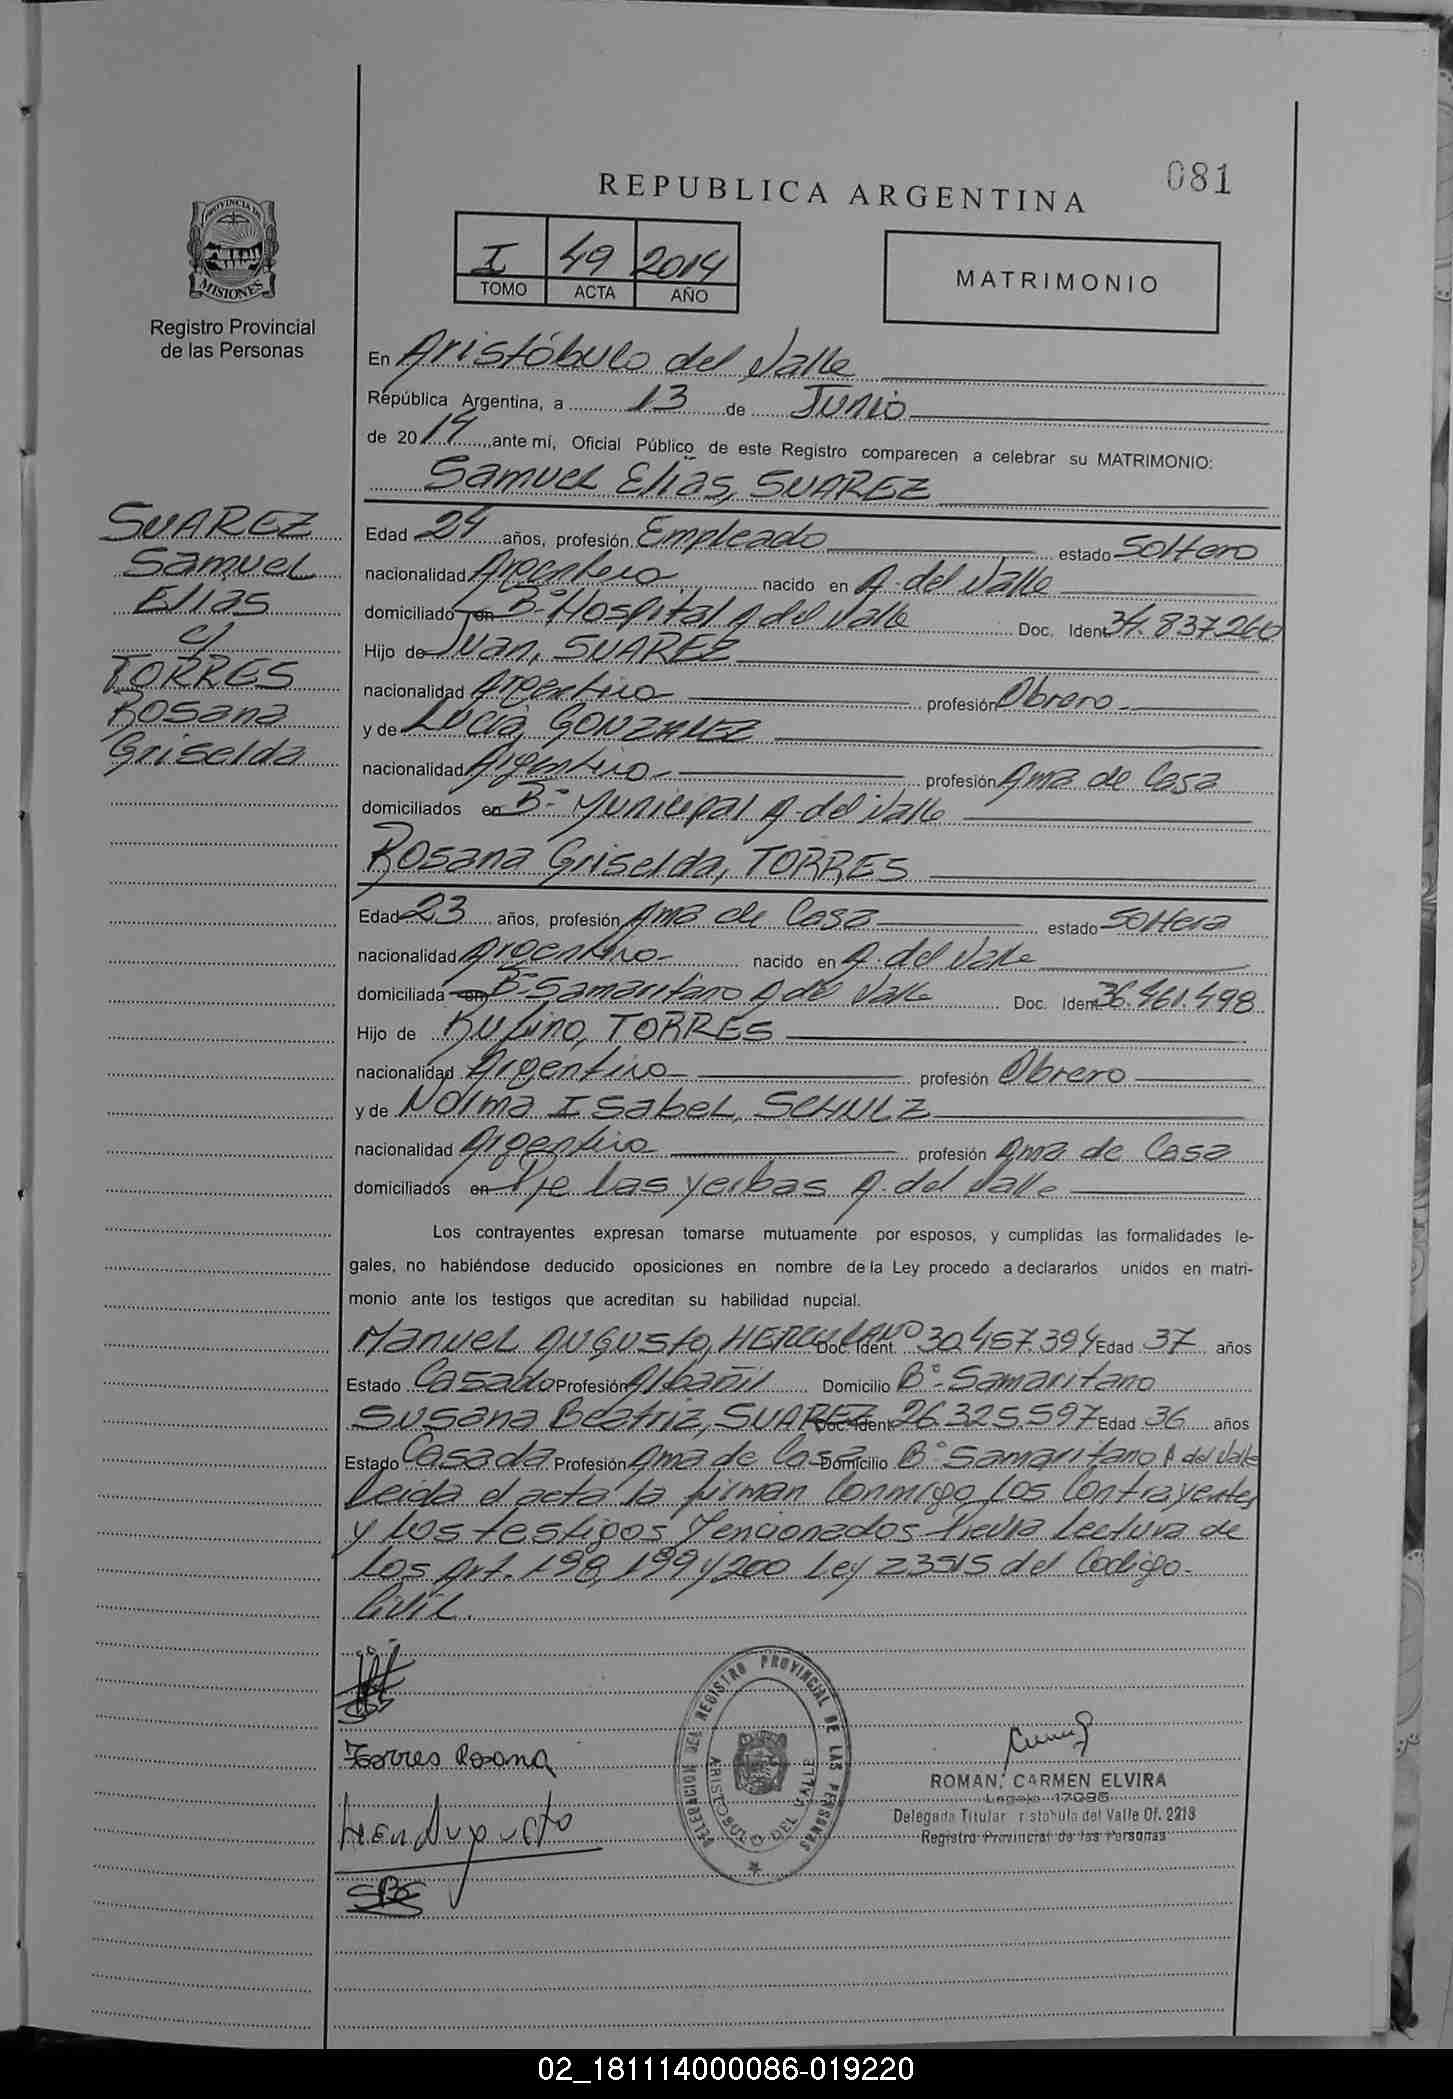 081
REPUBLICA ARGENTINA
PROVINCIA DE
MISIONES
Registro Provincial
de las Personas
I 49 2014
TOMO ACTA AÑO
MATRIMONIO
En Aristóbulo del Valle
República Argentina, a 13 de Junio
de 2014 ante mí, Oficial Público de este Registro comparecen a celebrar su MATRIMONIO:
Samuel Elias, SUAREZ
SUAREZ
Samuel
Elias
c/
TORRES
Rosana
Griselda
Edad 24 años, profesión Empleado estado Soltero
nacionalidad Argentino nacido en A. del Valle
domiciliado en Bº Hospital A del Valle Doc. Ident. 34.837.260
Hijo de Juan, SUAREZ
nacionalidad Argentino profesión Obrero
y de Lucia, GONZALEZ
nacionalidad Argentino profesión Ama de Casa
domiciliados en Bº Municipal A. del Valle
Rosana Griselda, TORRES
Edad 23 años, profesión Ama de Casa estado Soltera
nacionalidad Argentino nacido en A. del Valle
domiciliada en Bº Samaritano A del Valle Doc. Ident. 36.461.498
Hijo de Rufino, TORRES
nacionalidad Argentino profesión Obrero
y de Norma Isabel, SCHULZ
nacionalidad Argentino profesión Ama de Casa
domiciliados en Pje las yerbas A. del Valle
Los contrayentes expresan tomarse mutuamente por esposos, y cumplidas las formalidades le-
gales, no habiéndose deducido oposiciones en nombre de la Ley procedo a declararlos unidos en matri-
monio ante los testigos que acreditan su habilidad nupcial.
Manuel Augusto, HERCULANO Doc. Ident. 30.457.394 Edad 37 años
Estado Casado Profesión Albañil Domicilio Bº Samaritano
Susana Beatriz, SUAREZ Doc. Ident. 26.325.597 Edad 36 años
Estado Casada Profesión Ama de Casa Domicilio Bº Samaritano A del Valle
Leida el acta la firman Conmigo los Contrayentes
y los testigos Mencionados Previa Lectura de
los Art. 198, 199 y 200 Ley 23515 del Codigo
Civil.
DELEGACION DEL REGISTRO PROVINCIAL DE LAS PERSONAS
ARISTOBULO DEL VALLE
Torres Rosana
Augusto
SBS
ROMAN, CARMEN ELVIRA
Legajo 17095
Delegada Titular ristobulo del Valle Of. 2218
Registro Provincial de las Personas
02_181114000086-019220